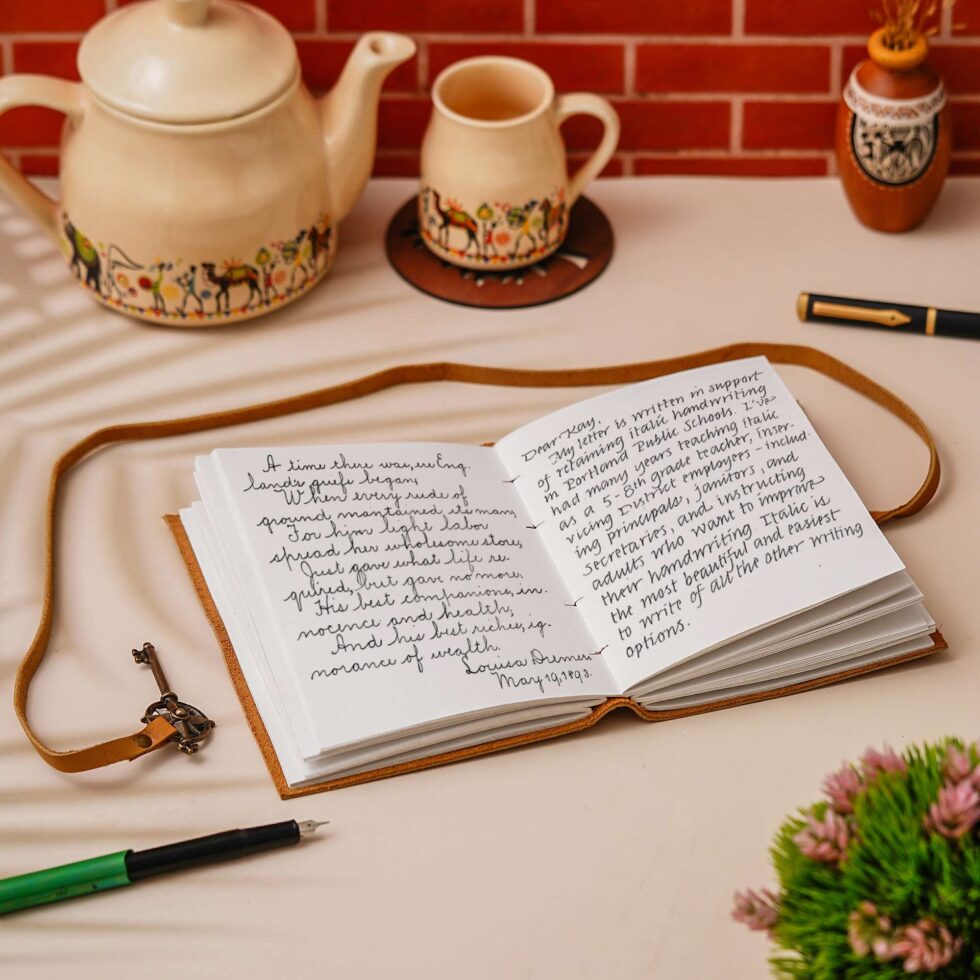 A time there was, ere Eng.
land's griefs began,
When every rude of
ground maintained its man;
For him light labor
spread her wholesome store,
Just gave what life re-
quired, but gave no more.
His best companions, in-
nocence and health;
And his best riches, ig-
norance of wealth.
Louisa
May 19, 1893.
Dear Kay,
My letter is written in support
of retaining italic handwriting
in Portland Public Schools. I've
had many years teaching italic
as a 5-8th grade teacher, inser-
vicing District employees - includ-
ing principals, janitors, and
secretaries, and instructing
adults who want to improve
their handwriting. Italic is
the most beautiful and easiest
to write of all the other writing
options.